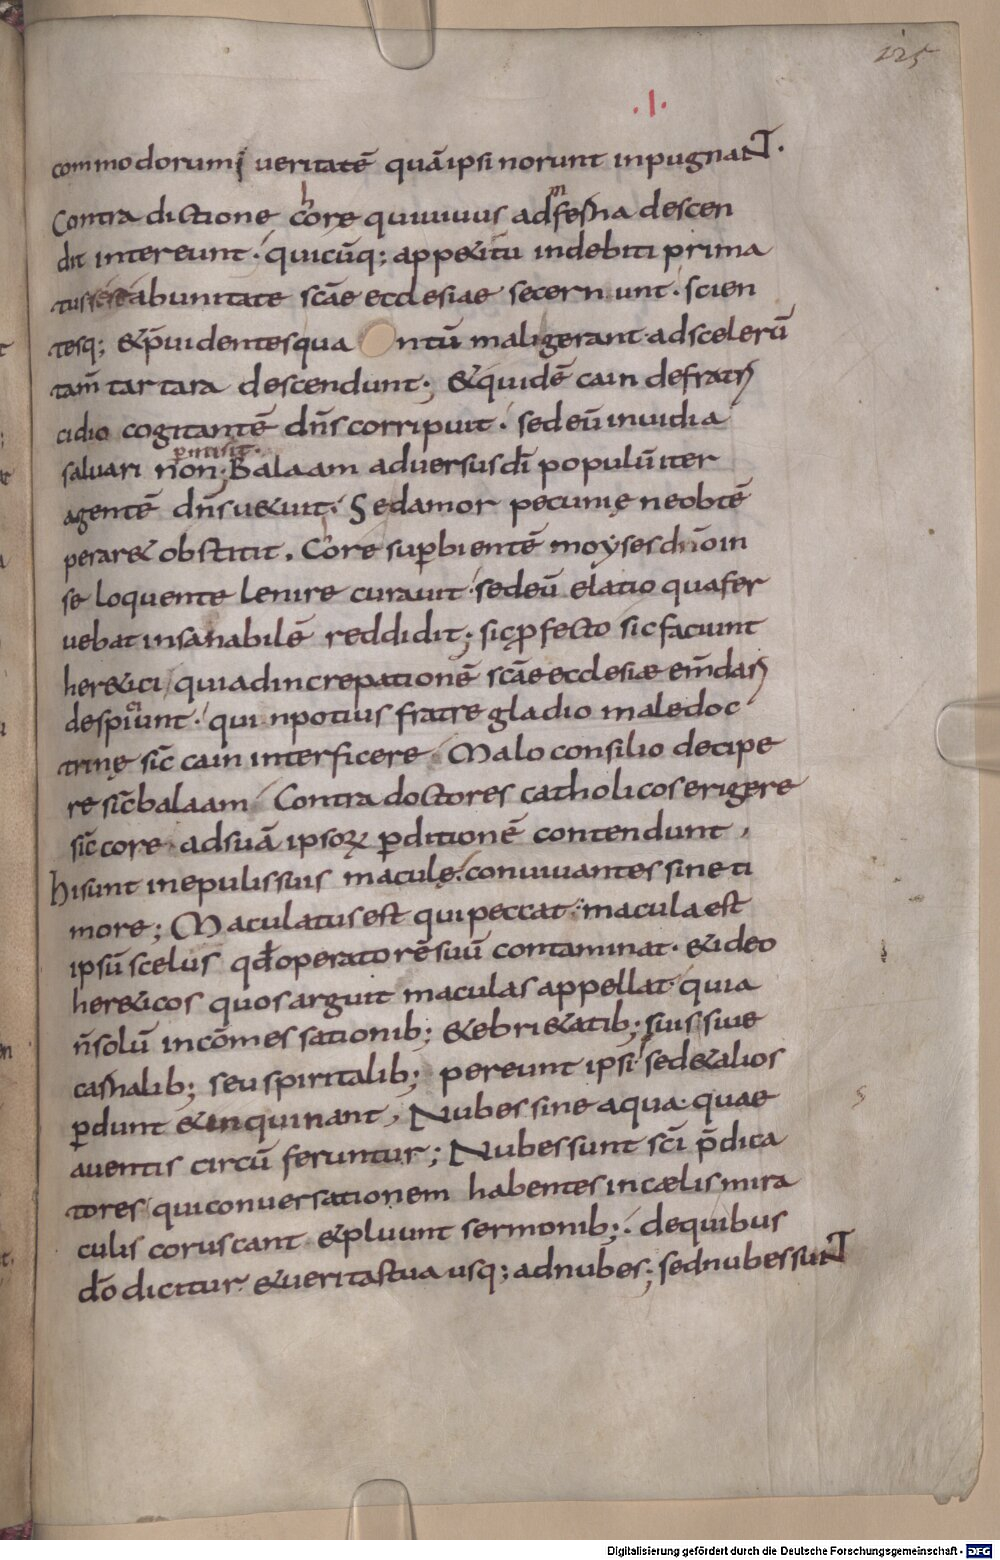 125
.I.
commodorum veritatē quā ipsi norunt inpugnaNT.
Contradictione chore qui vivus ad inferna descen
dit intereunt. quicūq; appetitu indebiti prima
tus sese ab unitate scāe ecclesiae secernunt. scien
tesq; & p̄videntes qua ntū mali gerant ad scelerū
tam̄ tartara descendunt; & quidē cain de fratri
cidio cogitantē dn̄s corripuit. sed eū invidia
salvari non p̱misit. Balaam adversus dī populū iter
agentē dn̄s vetuit. Sed amor pecunię ne obtē
peraret obstitit. Chore sup̱bientē moyses dn̄o in
se loquente lenire curavit. sed eū elatio qua fer
vebat insanabilē reddidit; sic p̱fecto sic faciunt
heretici qui ad increpationē scāe ecclesiæ em̄dari
despiciunt. qui npotius fratre gladio male doc
trinę sic̄ cain interficere. Malo consilio decipe
re sic̄ balaam Contra doctores catholicos erigere
sic̄ core ad suā ipsoꝝ p̱ditionē contendunt,
hi sunt in epulis suis maculę. convivantes sine ti
more; Maculatus est qui peccat. macula est
ipsū scelus qđ operatorē suū contaminat. & ideo
hereticos quos arguit maculas appellat quia
n̄ solū in cōmessationib; & ebrietatib; suis sive
carnalib; seu spiritalib; pereunt ipsi sed & alios
p̱dunt & inquinant, Nubes sine aqua. quae
a ventis circū feruntur; Nubes sunt scī p̄dica
tores qui conversationem habentes in cælis mira
culis coruscant & pluunt sermonib;. de quibus
dō dicitur. & veritas tua usq; ad nubes; sed nubes suNT
Digitalisierung gefördert durch die Deutsche Forschungsgemeinschaft - DFG